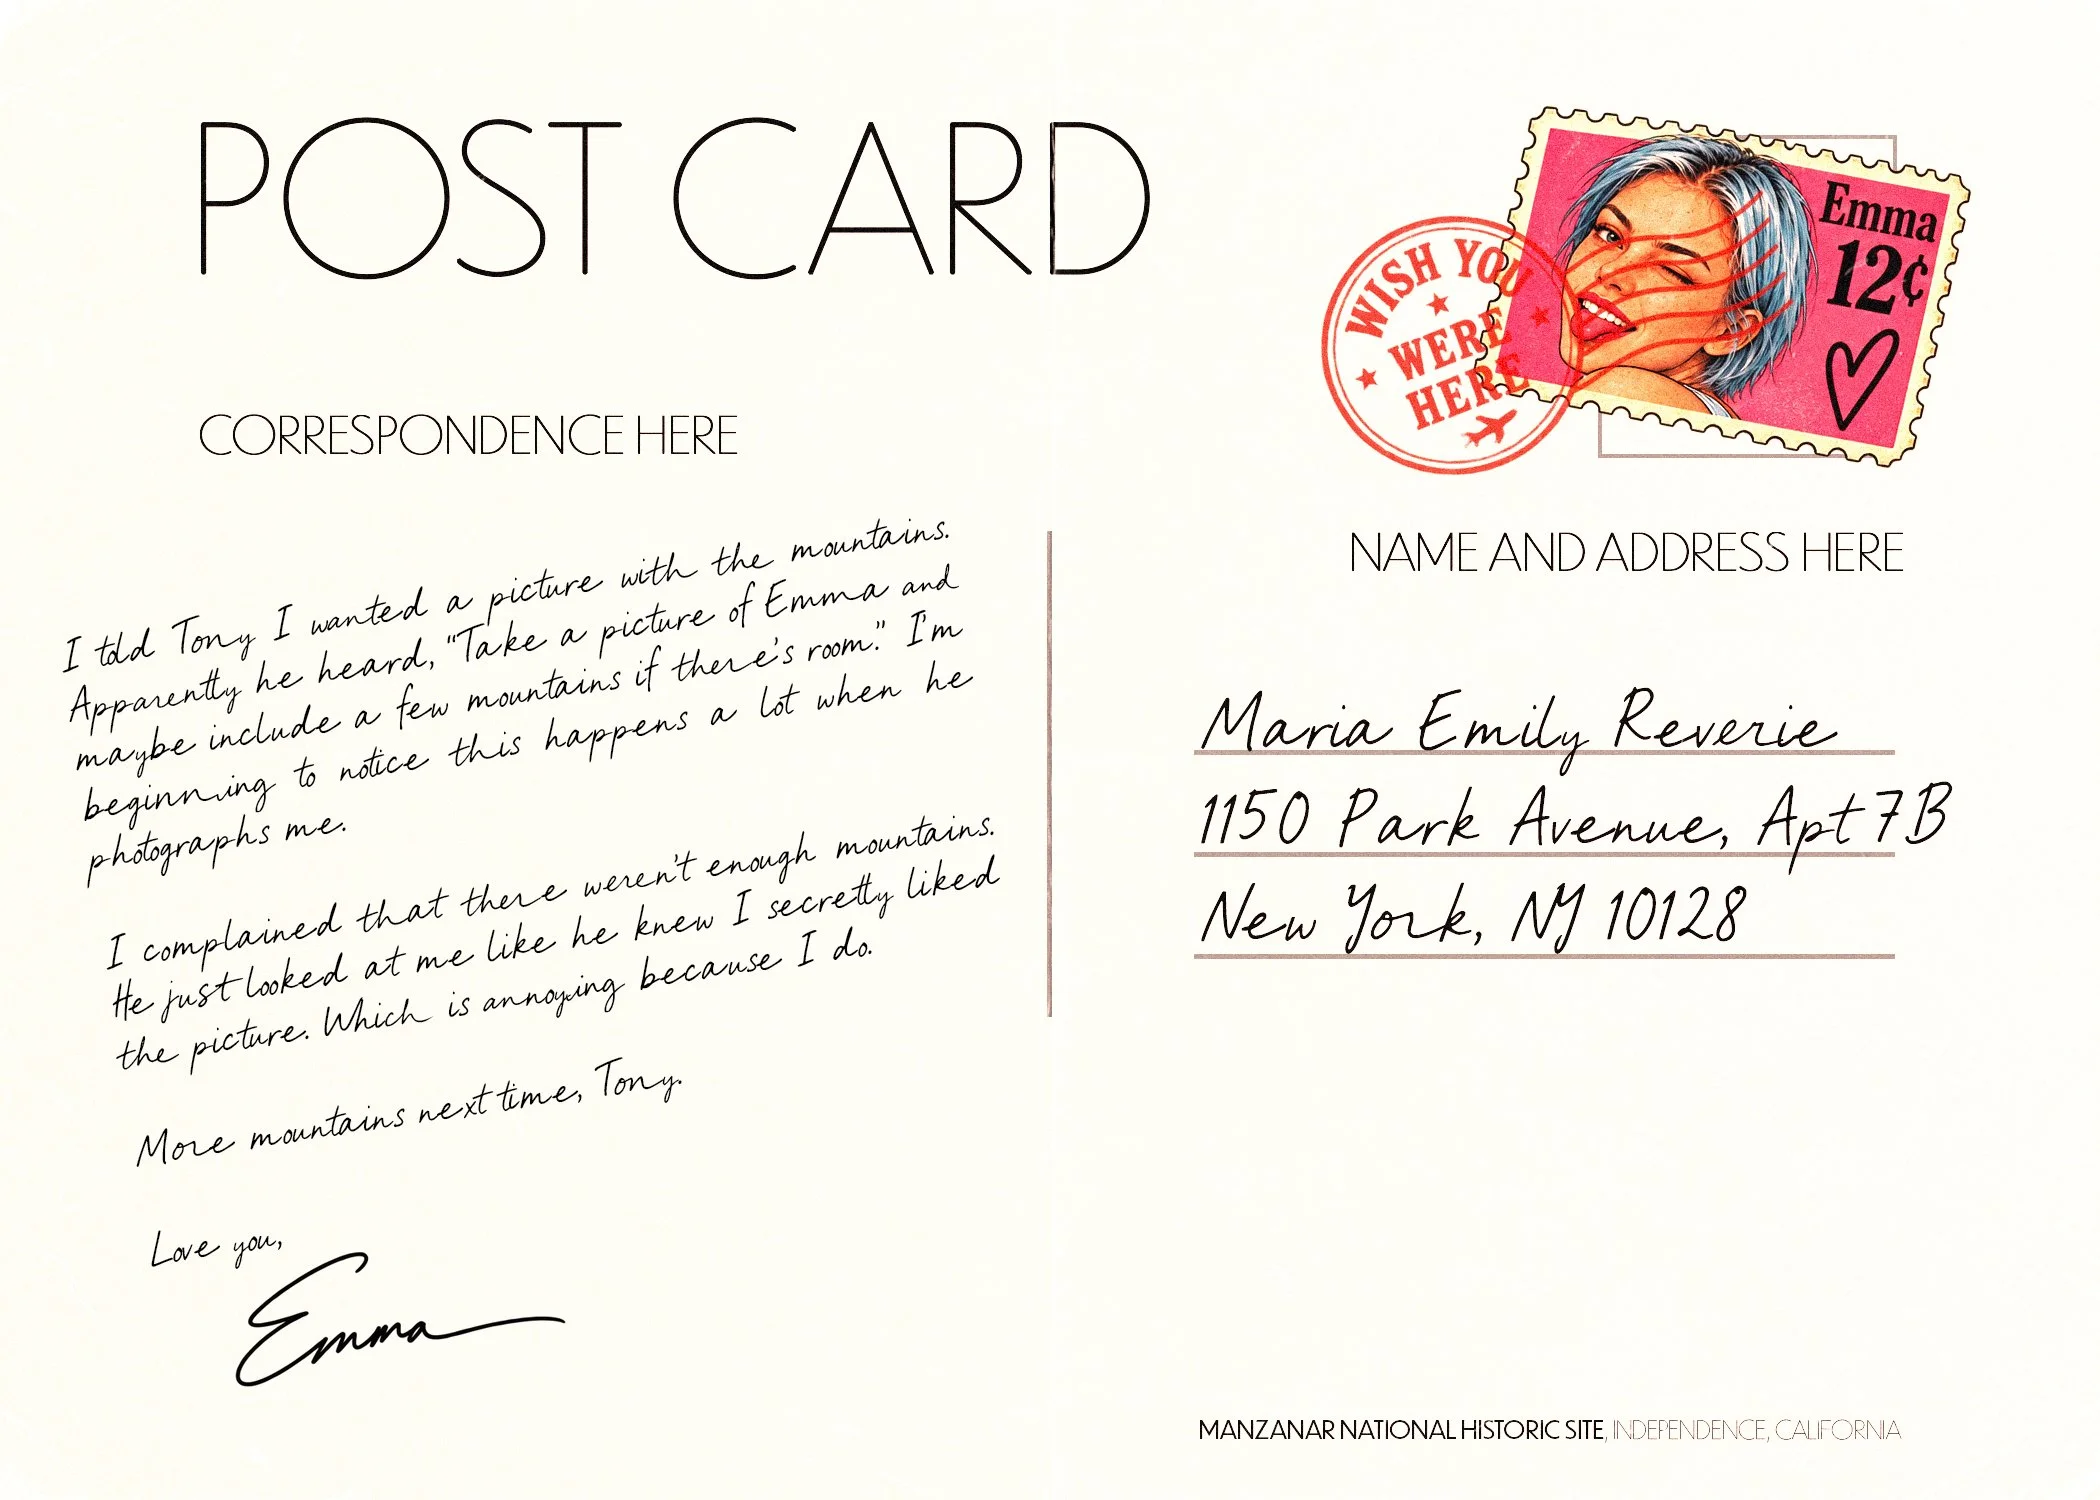 POST CARD
CORRESPONDENCE HERE
I told Tony I wanted a picture with the mountains.
Apparently he heard, "Take a picture of Emma and
maybe include a few mountains if there's room." I'm
beginning to notice this happens a lot when he
photographs me.
I complained that there weren't enough mountains.
He just looked at me like he knew I secretly liked
the picture. Which is annoying because I do.
More mountains next time, Tony.
Love you,
Emma
WISH YOU
WERE
HERE
Emma
12¢
NAME AND ADDRESS HERE
Maria Emily Reverie
1150 Park Avenue, Apt 7B
New York, NY 10128
MANZANAR NATIONAL HISTORIC SITE, INDEPENDENCE, CALIFORNIA